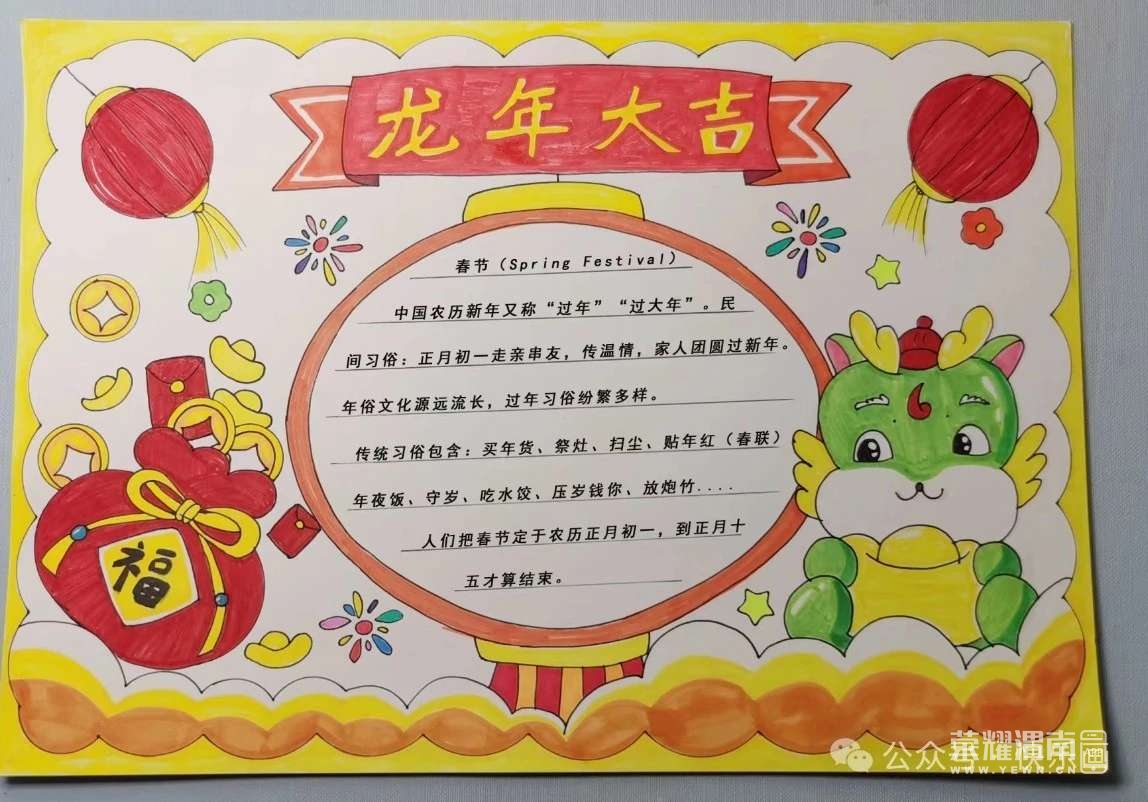 龙年大吉
春节（Spring Festival）
中国农历新年又称“过年”“过大年”。民
间习俗：正月初一走亲串友，传温情，家人团圆过新年。
年俗文化源远流长，过年习俗纷繁多样。
传统习俗包含：买年货、祭灶、扫尘、贴年红（春联）
年夜饭、守岁、吃水饺、压岁钱你、放炮竹....
人们把春节定于农历正月初一，到正月十
五才算结束。
福
公众号
荣耀渭南
WWW.YEWN.CN